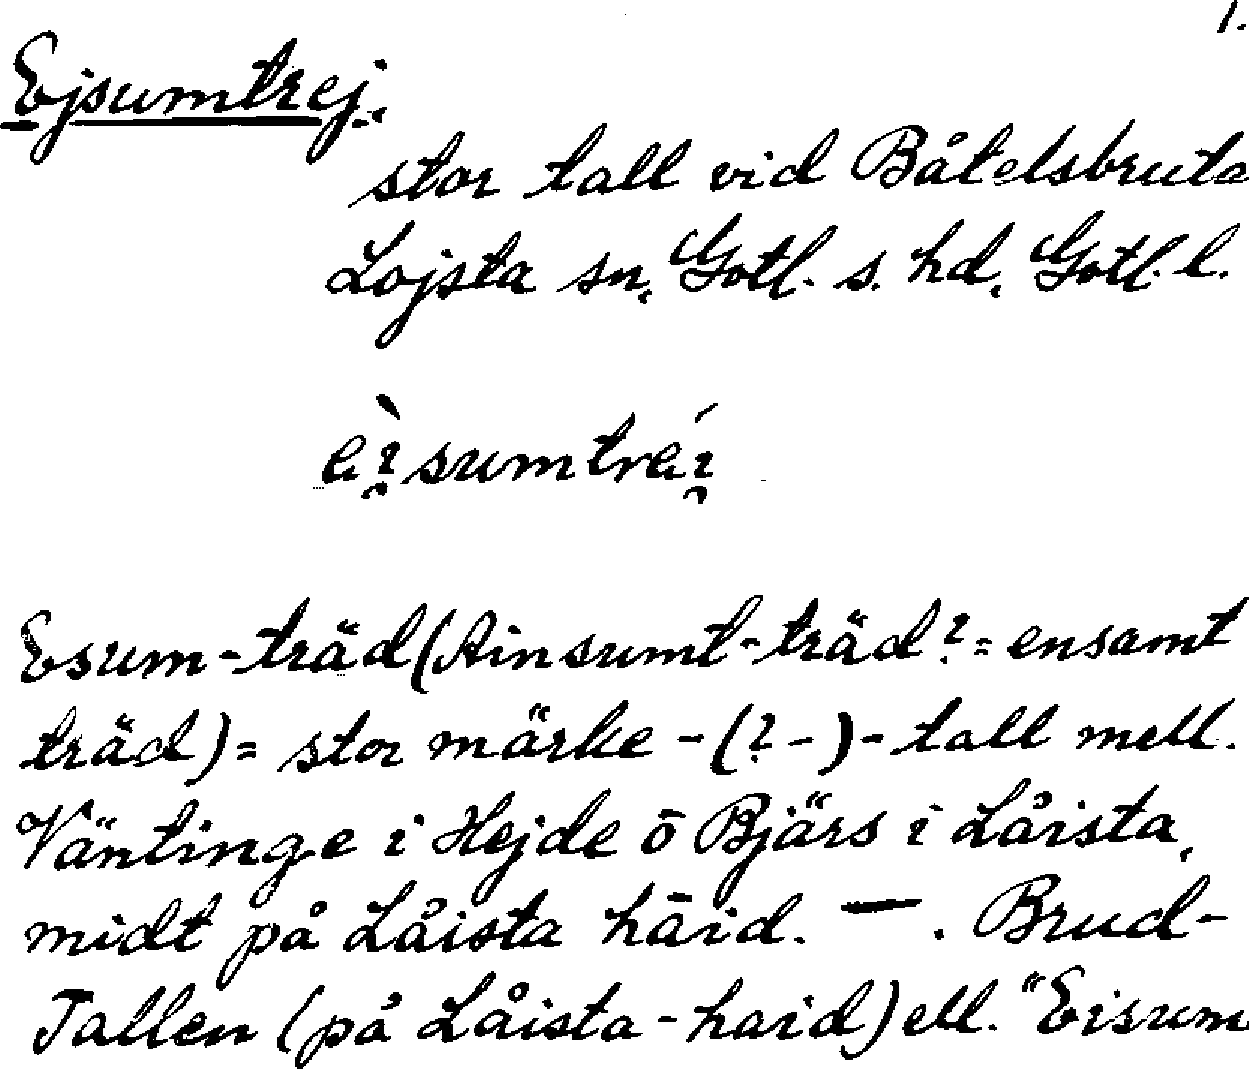 1.
Ejsumtrej.
stor tall vid Båtelsbruta
Lojsta sn, Gotl. s. hd, Gotl. l.
Esum-träd (Ainsumt-träd? = ensamt
träd) = stor märke-(?-)-tall mell.
Väntinge i Hejde ō Bjärs i Låista,
midt på Låista häid. — . Brud-
Tallen (på Låista-haid) ell. "Eisum